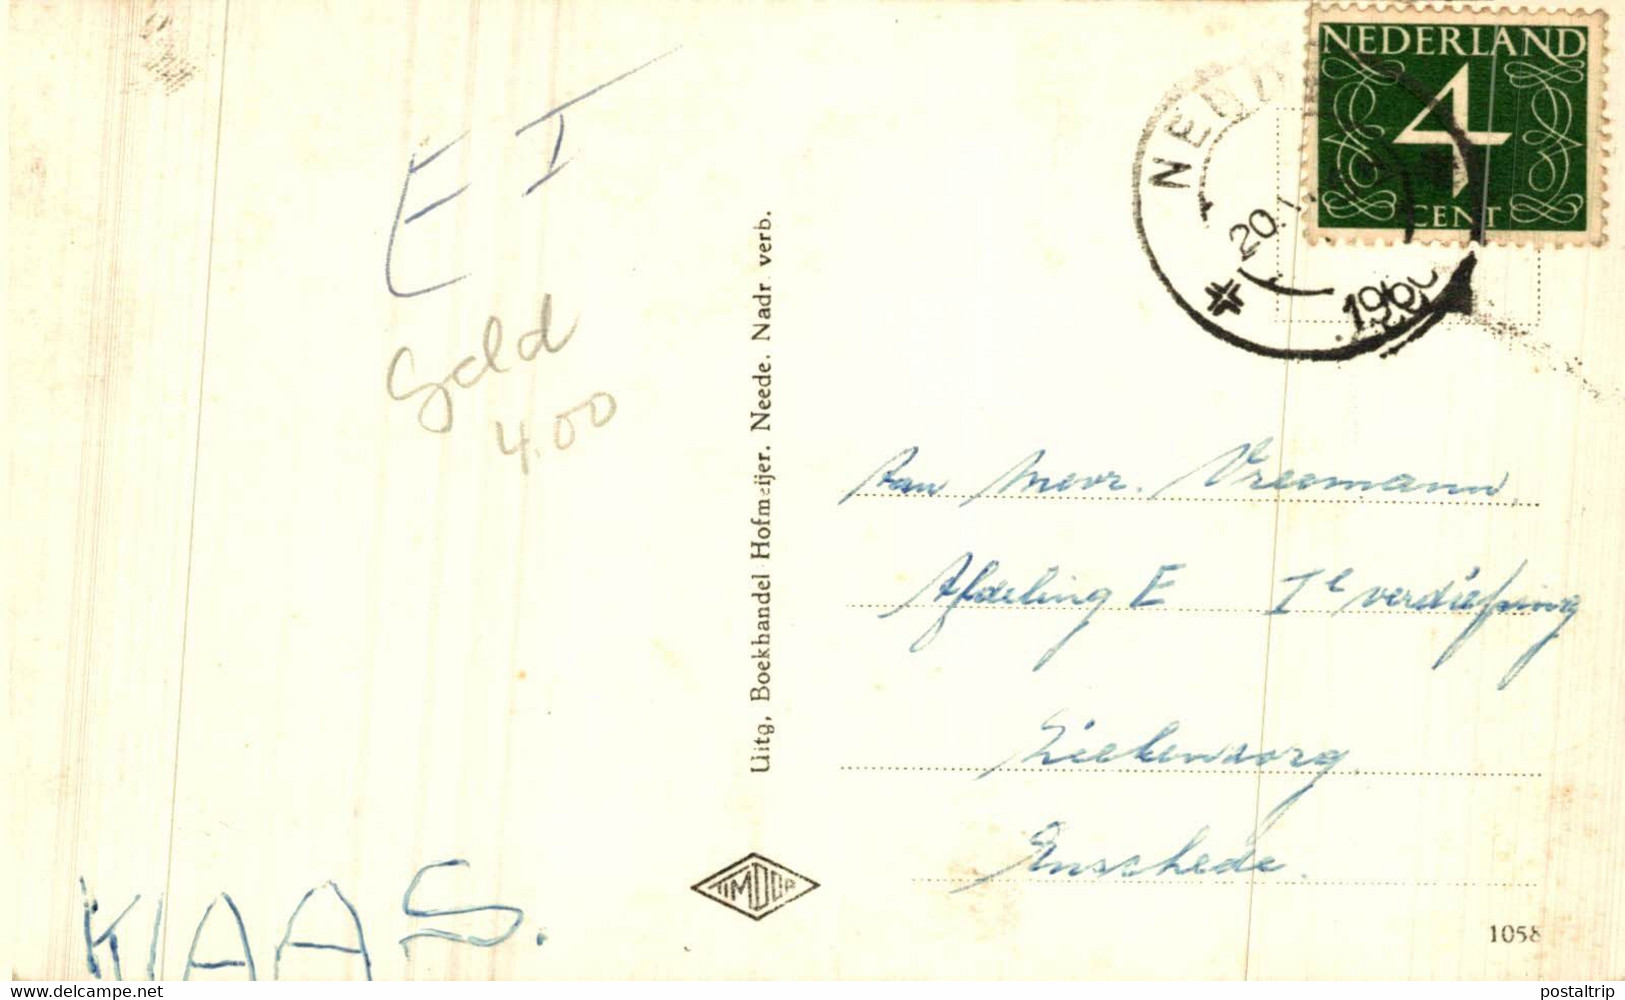 NEDERLAND
4
CENT
20.1
1960
E I
Geld
4.00
Uitg. Boekhandel Hofmeijer. Neede. Nadr. verb.
Aan Mevr. Vreemann
Afdeling E Ie verdieping
Ziekenzorg
Enschede.
KLAAS.
TIMDOR
1058
delcampe.net
postaltrip